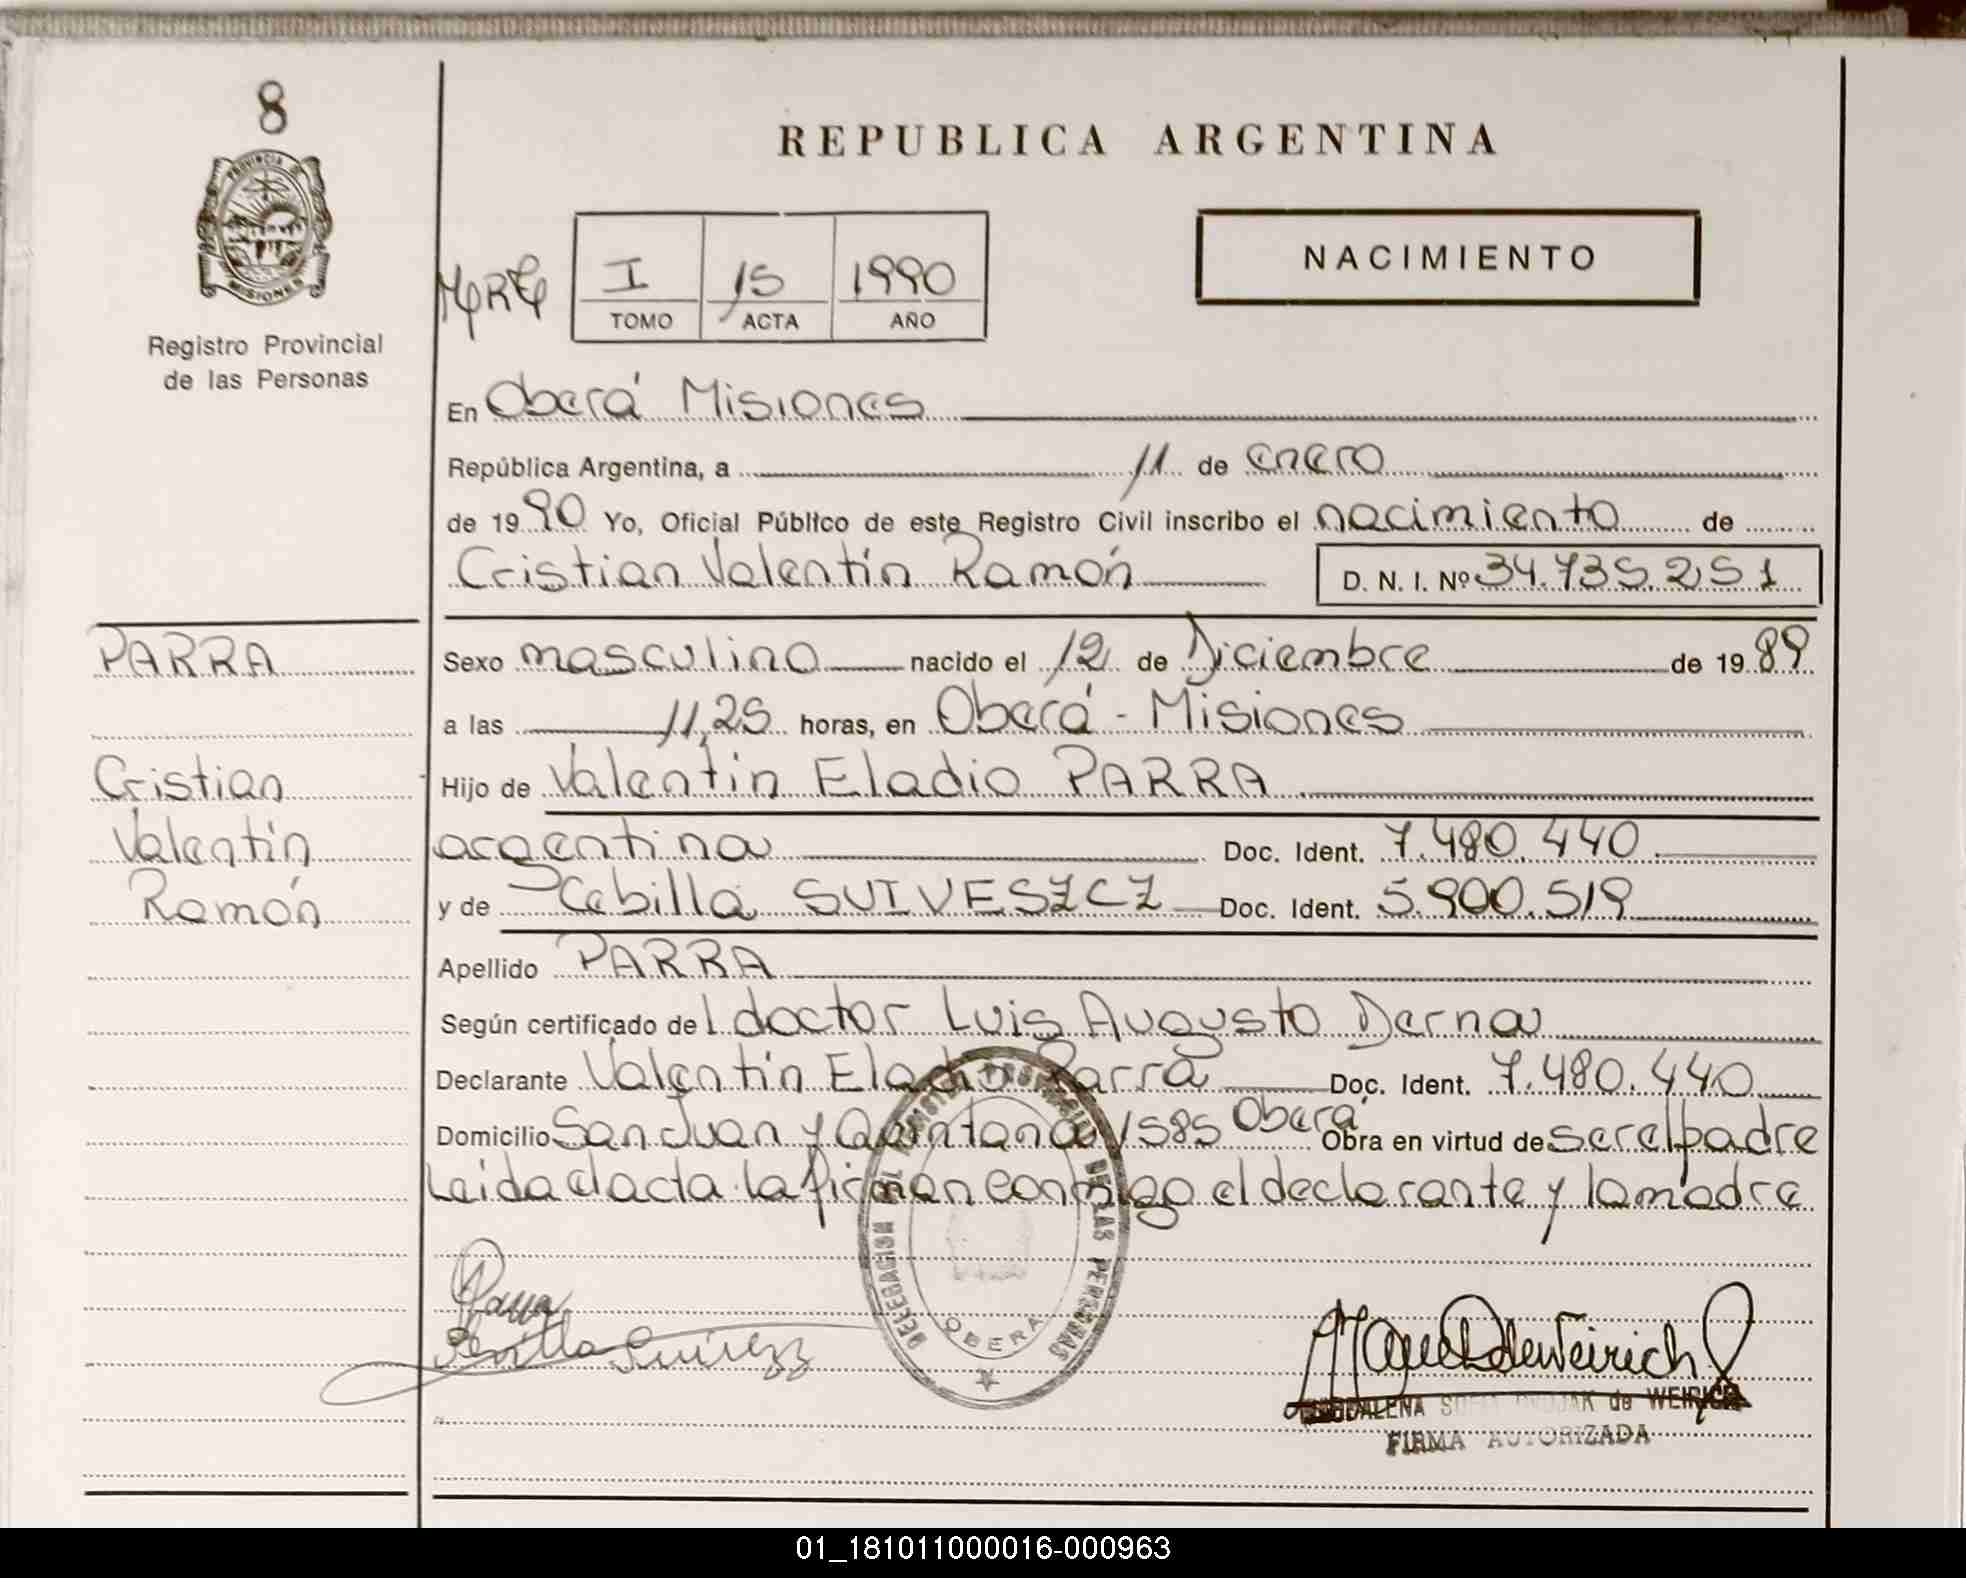 8
REPUBLICA ARGENTINA
PROVINCIA DE
MISIONES
Registro Provincial
de las Personas
I 15 1990
TOMO ACTA AÑO
NACIMIENTO
En Oberá Misiones
República Argentina, a 11 de enero
de 1990 Yo, Oficial Público de este Registro Civil inscribo el nacimiento de
Cristian Valentín Ramón D. N. I. Nº 34.735.251
PARRA
Cristian
Valentín
Ramón
Sexo masculino nacido el 12 de Diciembre de 1989
a las 11,25 horas, en Oberá - Misiones
Hijo de Valentín Eladio PARRA
argentina Doc. Ident. 7.480.440
y de SUIVESZCZ Doc. Ident. 5.900.519
Apellido PARRA
Según certificado del doctor Luis Augusto Derna
Declarante Valentín Eladio Parra Doc. Ident. 7.480.440
Domicilio San Juan y Quintana 1585 Oberá Obra en virtud de ser el padre
Leida el acta la firman conmigo el declarante y la madre
DELEGACION DEL REGISTRO PROVINCIAL DE LAS PERSONAS
OBERA
MAGDALENA de WEIRICH
FIRMA AUTORIZADA
01_181011000016-000963